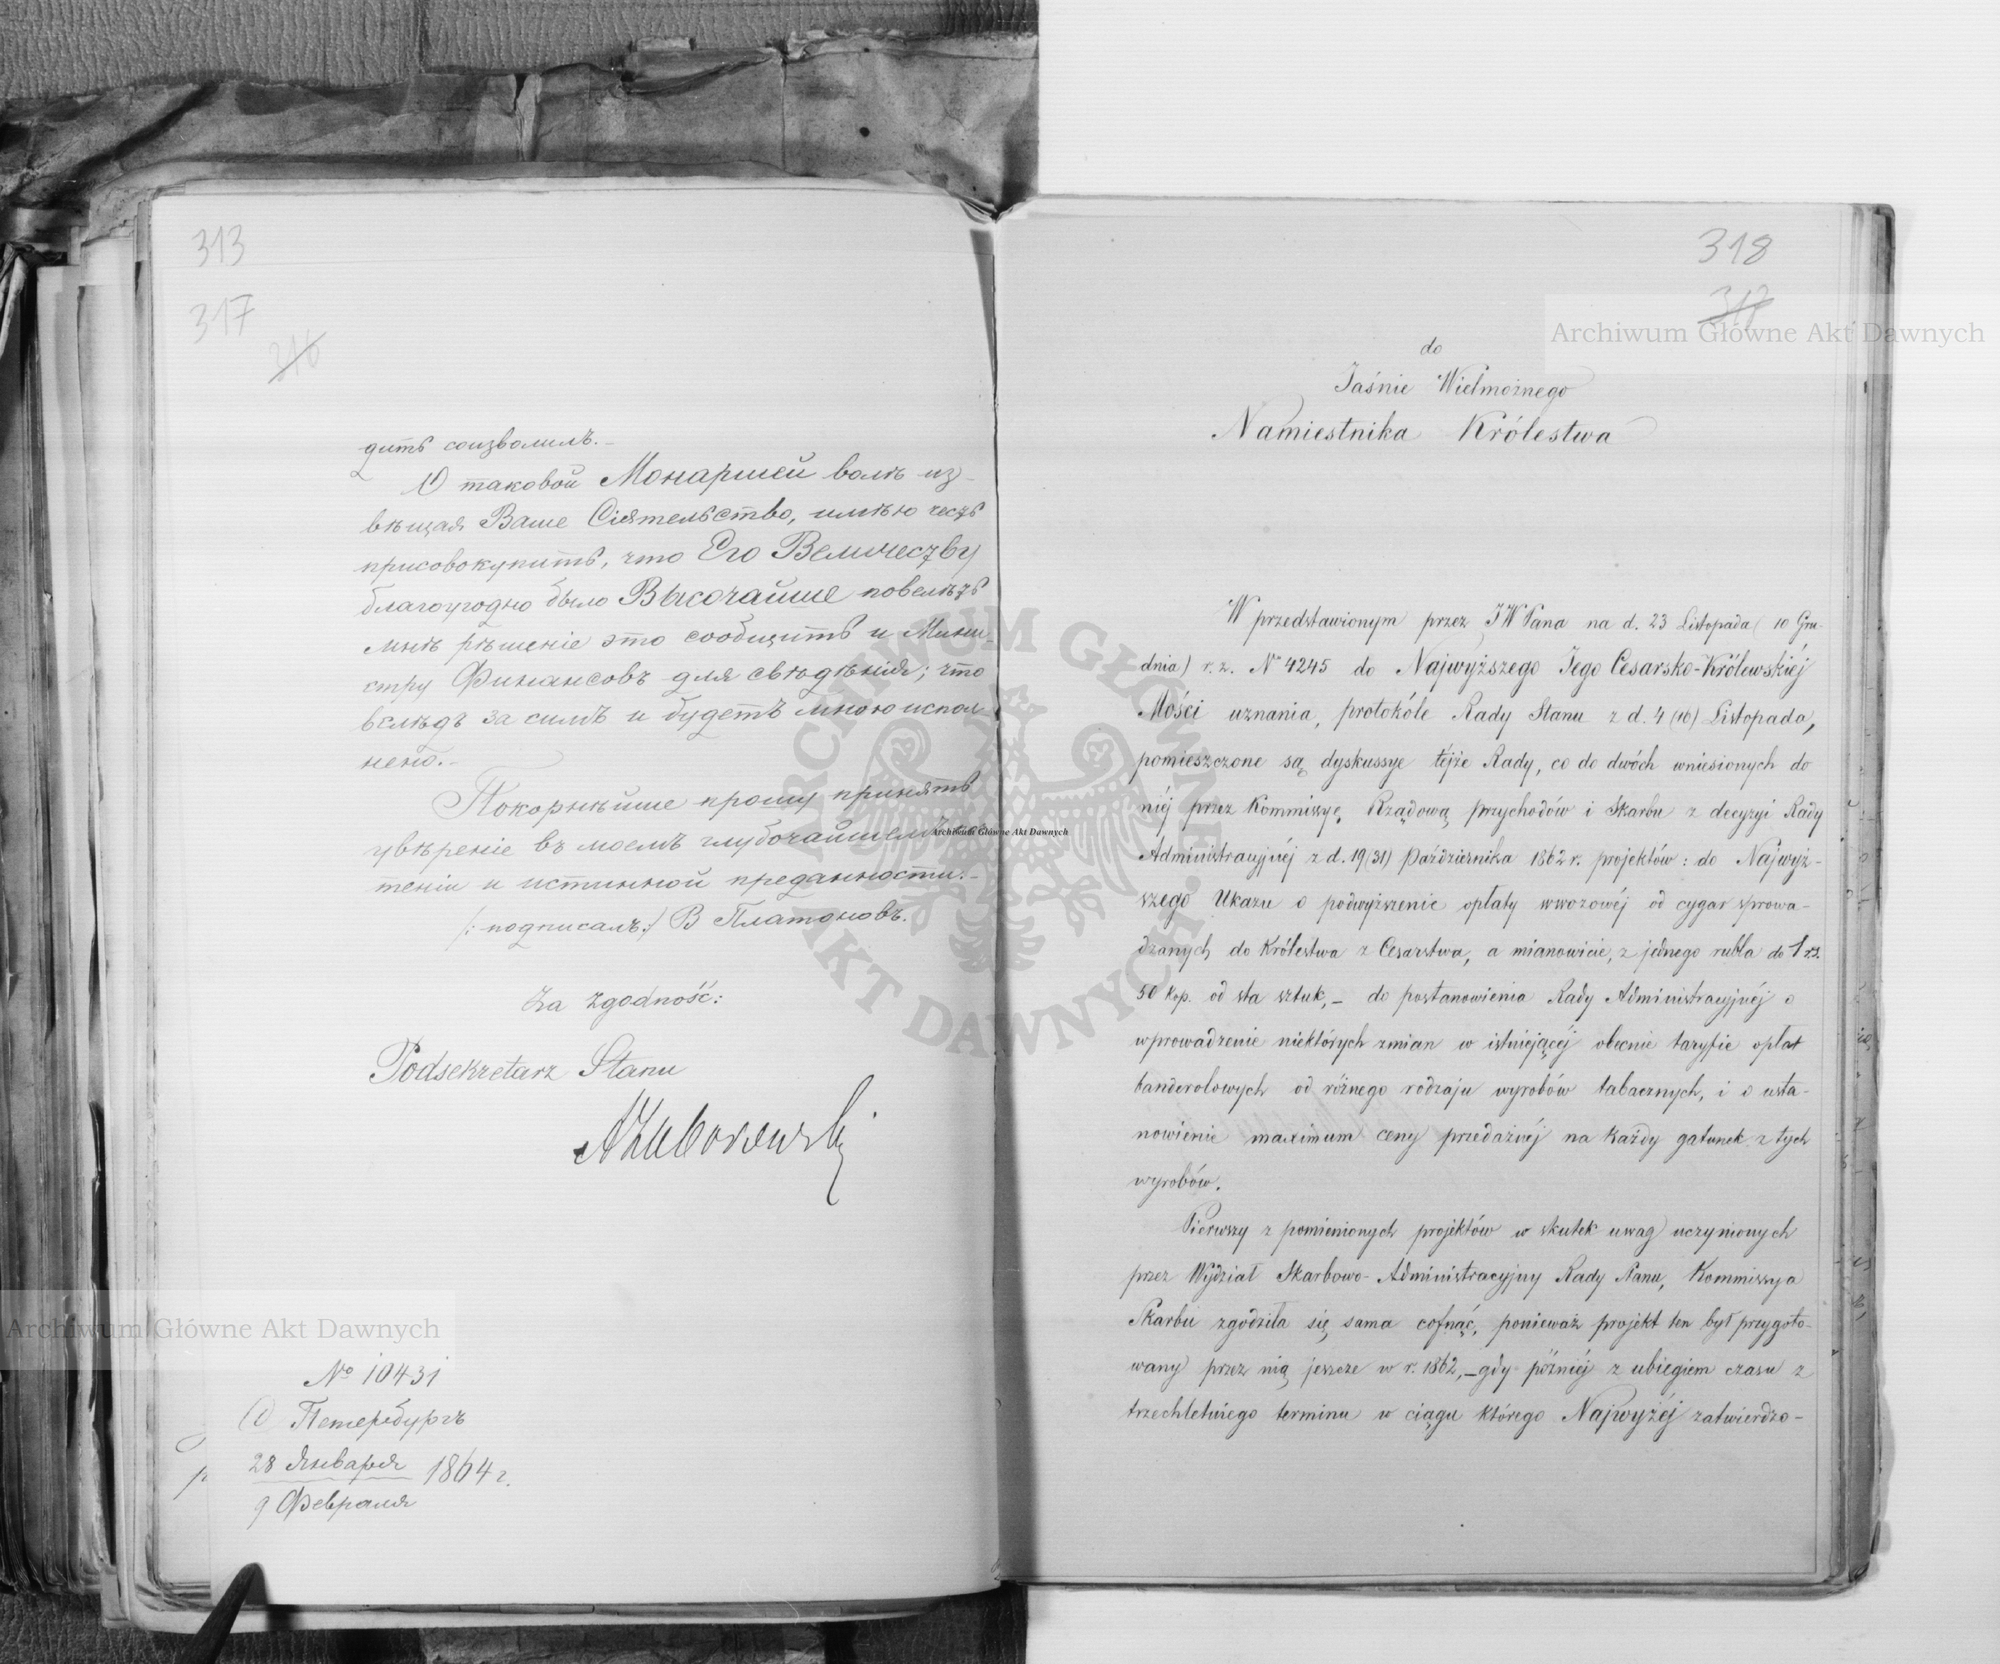 313
317
316
дить соизволилъ.-
О таковой Монаршей волѣ из-
вѣщая Ваше Сіятельство, имѣю честь
присовокупить, что Его Величеству
благоугодно было Высочайше повелѣть
мнѣ рѣшеніе это сообщить и Мини-
стру Финансовъ для свѣдѣнія; что
вслѣдъ за симъ и будетъ мною испол-
нено.-
Покорнѣйше прошу принять
увѣреніе въ моемъ глубочайшемъ поч-
теніи и истинной преданности.-
/:подписалъ:/ В Платоновъ.
Za zgodność:
Podsekretarz Stanu
№ 10431
С Петербургъ
28 Января
1864 г.
9 Февраля
318
317
do
Jaśnie Wielmożnego
Namiestnika Królestwa
W przedstawionym przez JW Pana na d. 23 Listopada (10 Gru-
dnia) r. z. № 4245 do Najwyższego Jego Cesarsko-Królewskiéj
Mości uznania, protokóle Rady Stanu z d. 4 (16) Listopada,
pomieszczone są dyskussye téjże Rady, co do dwóch wniesionych do
niéj przez Kommissyę Rządową Przychodów i Skarbu z decyzyi Rady
Administracyjnéj z d. 19 (31) Października 1862 r. projektów: do Najwyż-
szego Ukazu o podwyższenie opłaty wwozowéj od cygar sprowa-
dzanych do Królestwa z Cesarstwa, a mianowicie, z jednego rubla do 1 rs.
50 kop. od sta sztuk,- do postanowienia Rady Administracyjnéj o
wprowadzenie niektórych zmian w istniejącéj obecnie taryfie opłat
banderolowych od różnego rodzaju wyrobów tabacznych, i o usta-
nowienie maximum ceny przedażnéj na każdy gatunek z tych
wyrobów.
Pierwszy z pomienionych projektów w skutek uwag uczynionych
przez Wydział Skarbowo-Administracyjny Rady Stanu, Kommissya
Skarbu zgodziła się sama cofnąć, ponieważ projekt ten był przygoto-
wany przez nią jeszcze w r. 1862,- gdy późniéj z ubiegiem czasu z
trzechletniego terminu w ciągu którego Najwyżéj zatwierdzo-
Archiwum Główne Akt Dawnych
Archiwum Główne Akt Dawnych
Archiwum Główne Akt Dawnych
ARCHIWUM GŁÓWNE AKT DAWNYCH